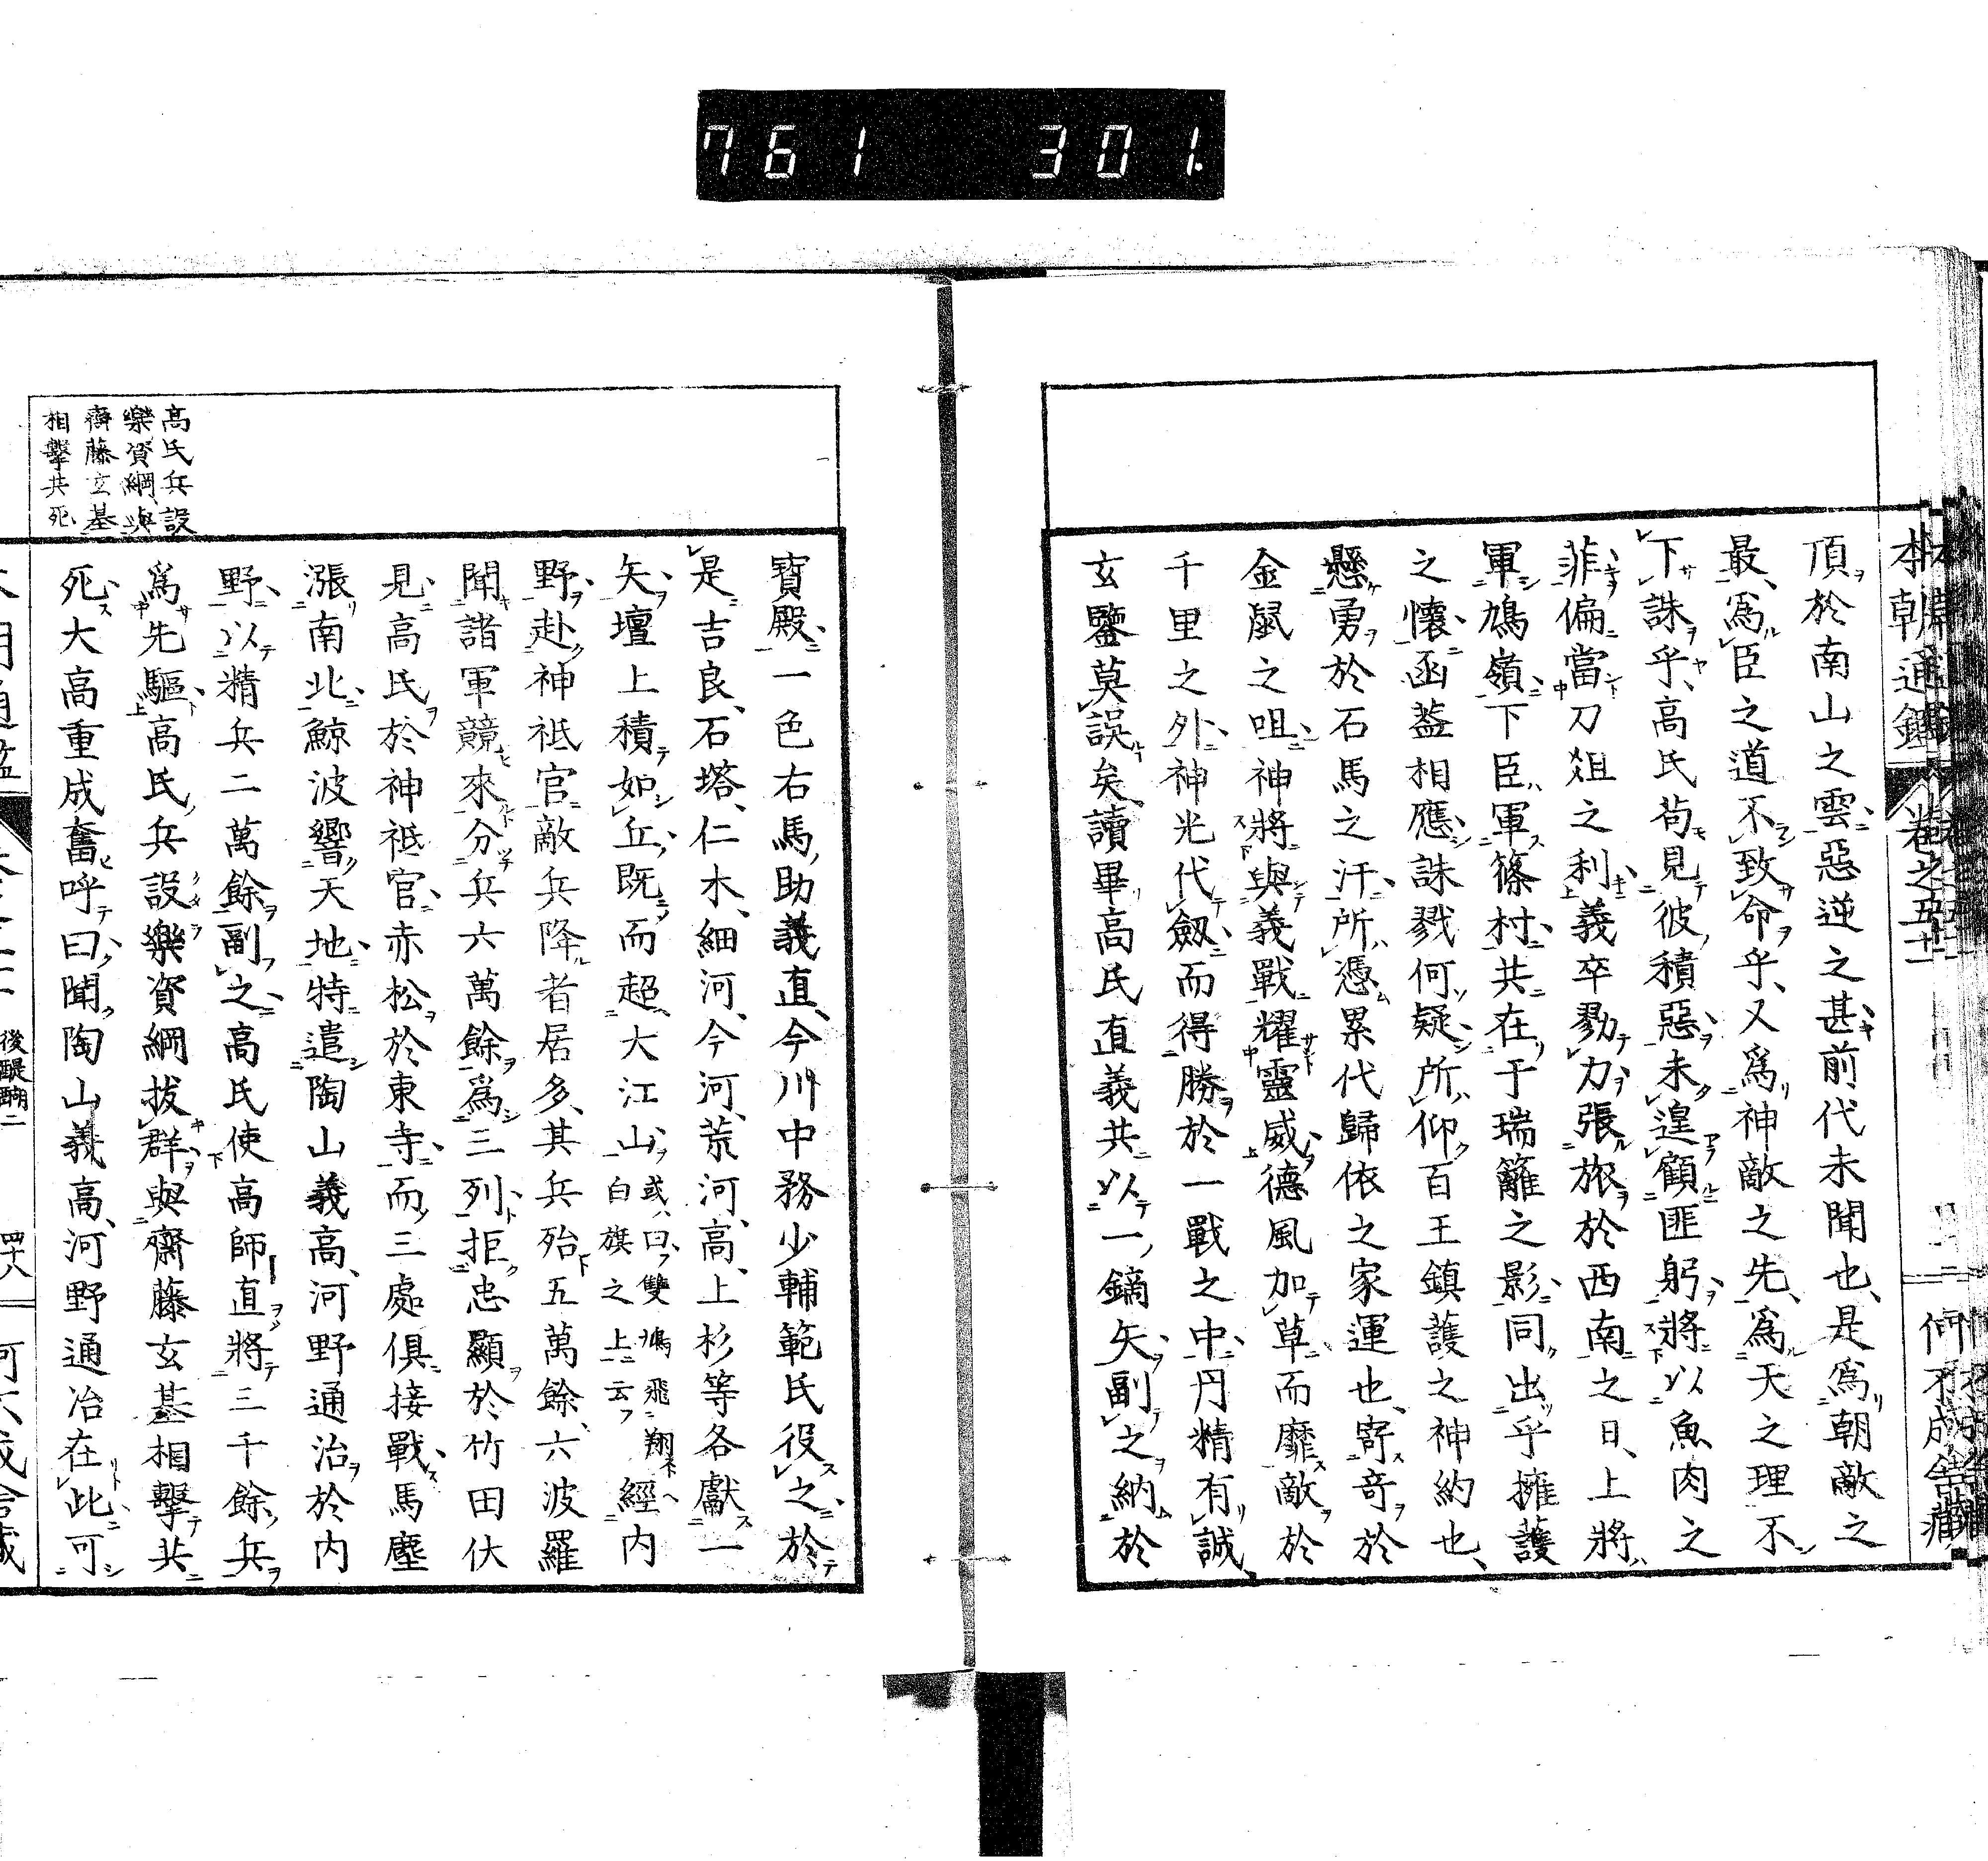 761 301
本朝通鑑 卷之五十一
頂於南山之雲惡逆之甚前代未聞也是爲朝敵之
最爲臣之道不致命乎又爲神敵之先爲天之理不
下誅乎高氏苟見彼積惡未遑顧匪躬將以魚肉之
菲偏當刀俎之利義卒勠力張旅於西南之日上將
軍鳩嶺下臣軍篠村共在于瑞籬之影同出乎擁護
之懷函蓋相應誅戮何疑所仰百王鎮護之神約也
懸勇於石馬之汗所憑累代歸依之家運也寄奇於
金鼠之咀神將與義戰耀靈威德風加草而靡敵於
千里之外神光代劔而得勝於一戰之中丹精有誠
玄鑒莫誤矣讀畢高氏直義共以一鏑矢副之納於
高氏兵設
樂資綱與
齊藤玄基
相擊共死
寶殿一色右馬助義直今川中務少輔範氏役之於
是吉良石塔仁木細河今河荒河高上杉等各獻一
矢壇上積如丘既而超大江山或曰雙鳩飛翔白旗之上云經内
野赴神祇官敵兵降者居多其兵殆五萬餘六波羅
聞諸軍競來分兵六萬餘爲三列拒忠顯於竹田伏
見高氏於神祇官赤松於東寺而三處俱接戰馬塵
漲南北鯨波響天地特遣陶山義高河野通治於内
野以精兵二萬餘副之高氏使高師直將三千餘兵
爲先驅高氏兵設樂資綱拔群與齋藤玄基相擊共
死大高重成奮呼曰聞陶山義高河野通治在此可
後醍醐二